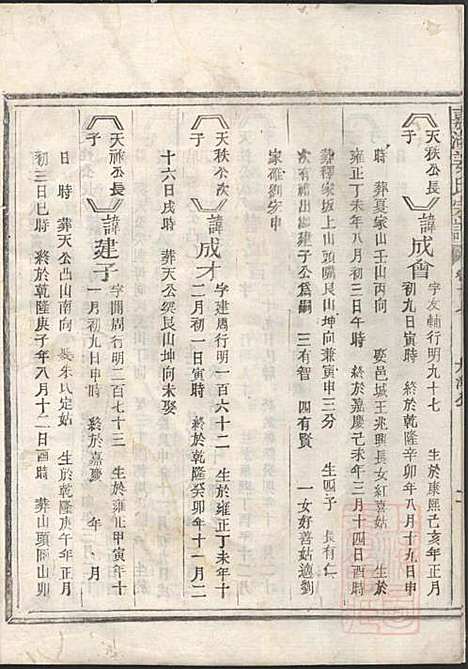 天秩公長子
諱成會
字友輔行明九十七　生於康熙己亥年正月
初九日寅時　終於乾隆辛卯年八月十九日申
時　葬夏家山壬山丙向　娶邑城王兆興長女紅喜姑　生於
雍正丁未年八月初三日午時　終於嘉慶己未年三月十四日酉時
葬釋家坂上山頭關艮山坤向兼寅申三分　生四子　長有仁
次有補出繼建子公爲嗣　三有智　四有賢　一女好喜姑適劉
家碓劉亥申
天秩公次子
諱成才
字建周行明一百六十二　生於雍正丁未年十
二月初一日寅時　終於乾隆癸卯年十一月二
十六日戌時　葬天公梁艮山坤向未娶
天祿公長子
諱建子
字開周行明二百七十三　生於雍正甲寅年十
一月初九日申時　終於嘉慶　年　月
日　時　葬天公凸山南向　娶朱氏定姑　生於乾隆庚午年正月
初三日巳時　終於乾隆庚子年八月十二日酉時　葬山頭關山卯